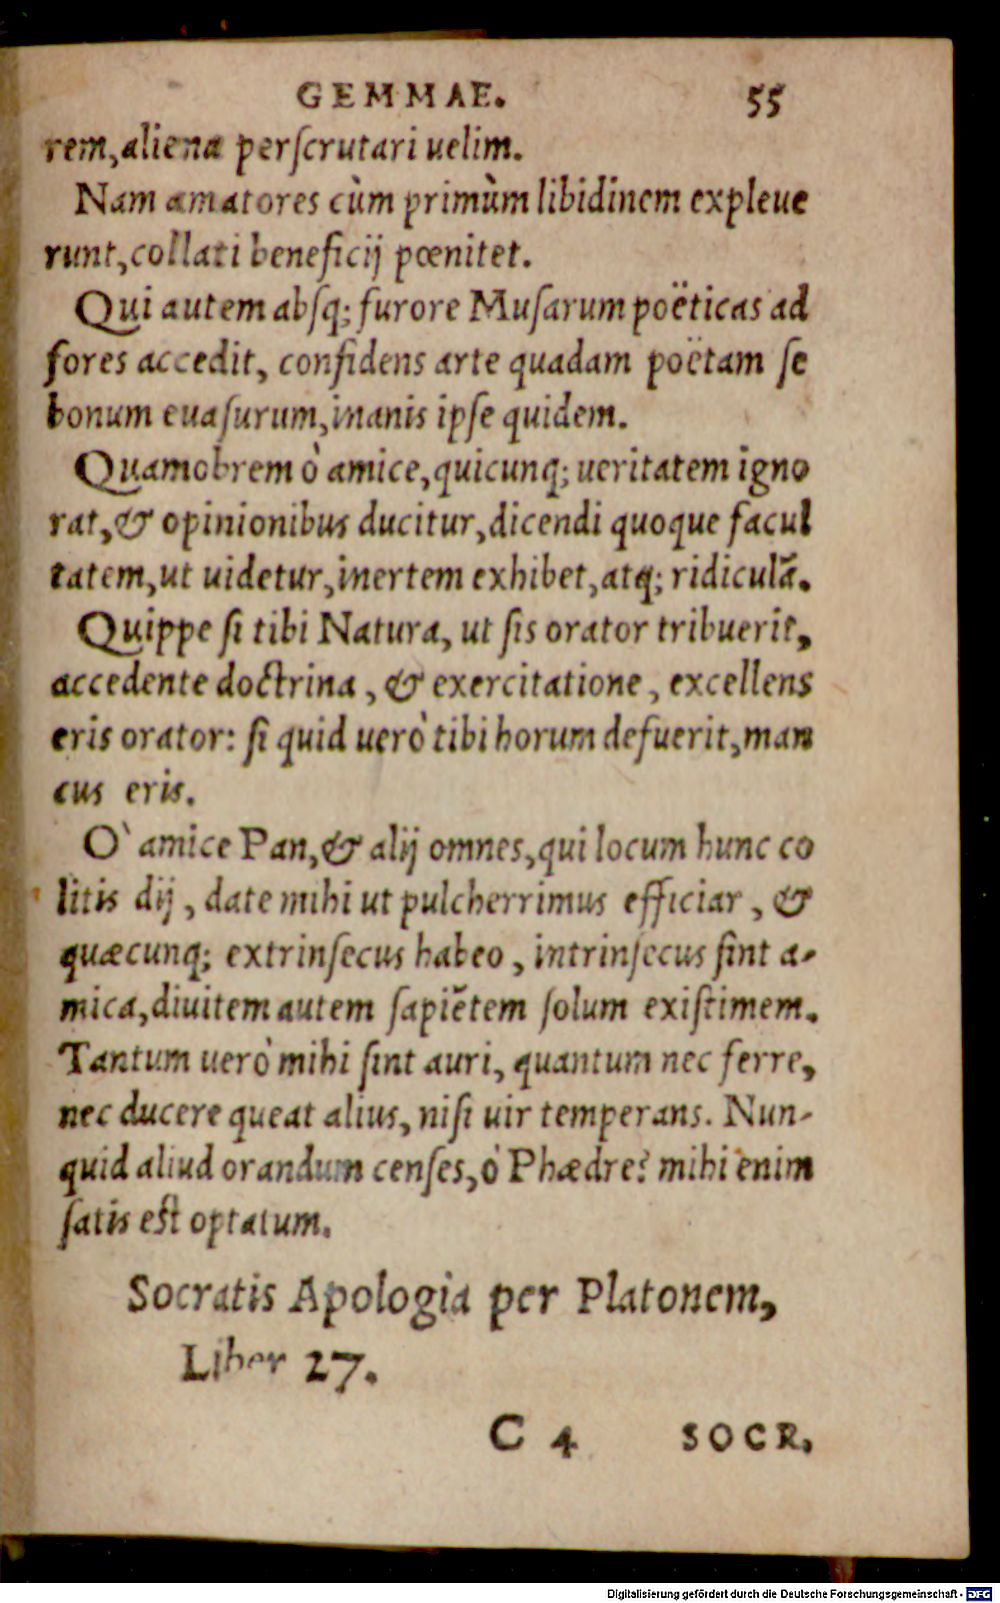 GEMMAE. 55
rem, aliena perſcrutari uelim.
Nam amatores cùm primùm libidinem expleue
runt, collati beneficij pœnitet.
Qui autem abſq; furore Muſarum poëticas ad
fores accedit, confidens arte quadam poëtam ſe
bonum euaſurum, inanis ipſe quidem.
Quamobrem ò amice, quicunq; ueritatem igno
rat, & opinionibus ducitur, dicendi quoque facul
tatem, ut uidetur, inertem exhibet, atq; ridiculā.
Quippe ſi tibi Natura, ut ſis orator tribuerit,
accedente doctrina, & exercitatione, excellens
eris orator: ſi quid uerò tibi horum defuerit, man
cus eris.
O` amice Pan, & alij omnes, qui locum hunc co
litis dij, date mihi ut pulcherrimus efficiar, &
quæcunq; extrinſecus habeo, intrinſecus ſint a-
mica, diuitem autem ſapiētem ſolum exiſtimem.
Tantum uerò mihi ſint auri, quantum nec ferre,
nec ducere queat alius, niſi uir temperans. Nun-
quid aliud orandum cenſes, ò Phædre? mihi enim
ſatis eſt optatum.
Socratis Apologia per Platonem,
Liber 27.
C 4 SOCR.
Digitalisierung gefördert durch die Deutsche Forschungsgemeinschaft - DFG